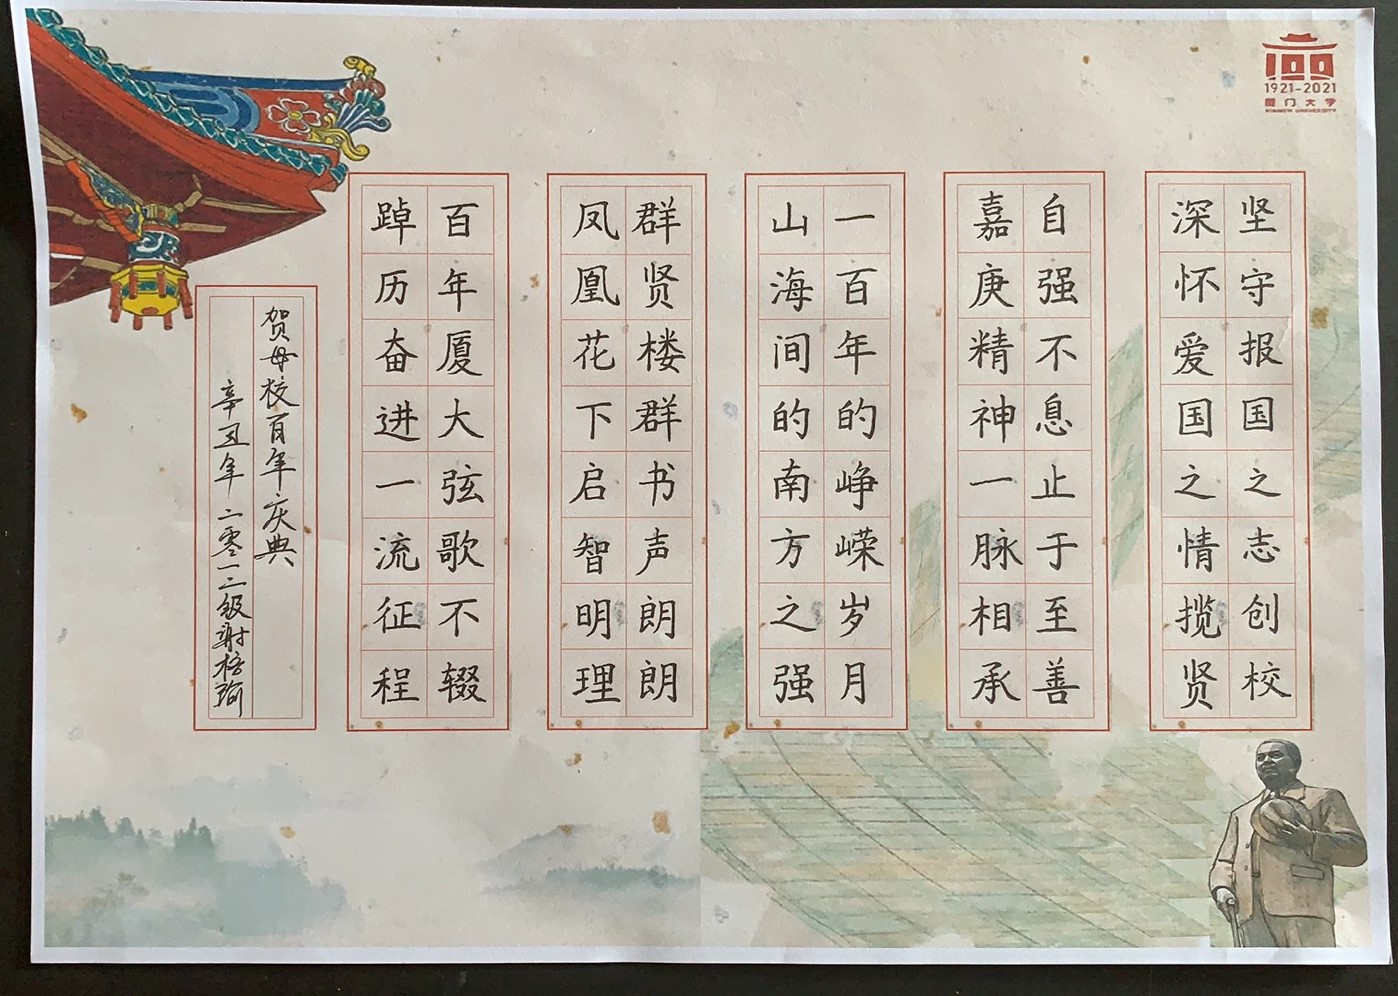 坚守报国之志创校
深怀爱国之情揽贤
自强不息止于至善
嘉庚精神一脉相承
一百年的峥嵘岁月
山海间的南方之强
群贤楼群书声朗朗
凤凰花下启智明理
百年厦大弦歌不辍
踔历奋进一流征程
贺母校百年庆典
辛丑年二零一二级谢格瑜
100
1921-2021
厦门大学
XIAMEN UNIVERSITY